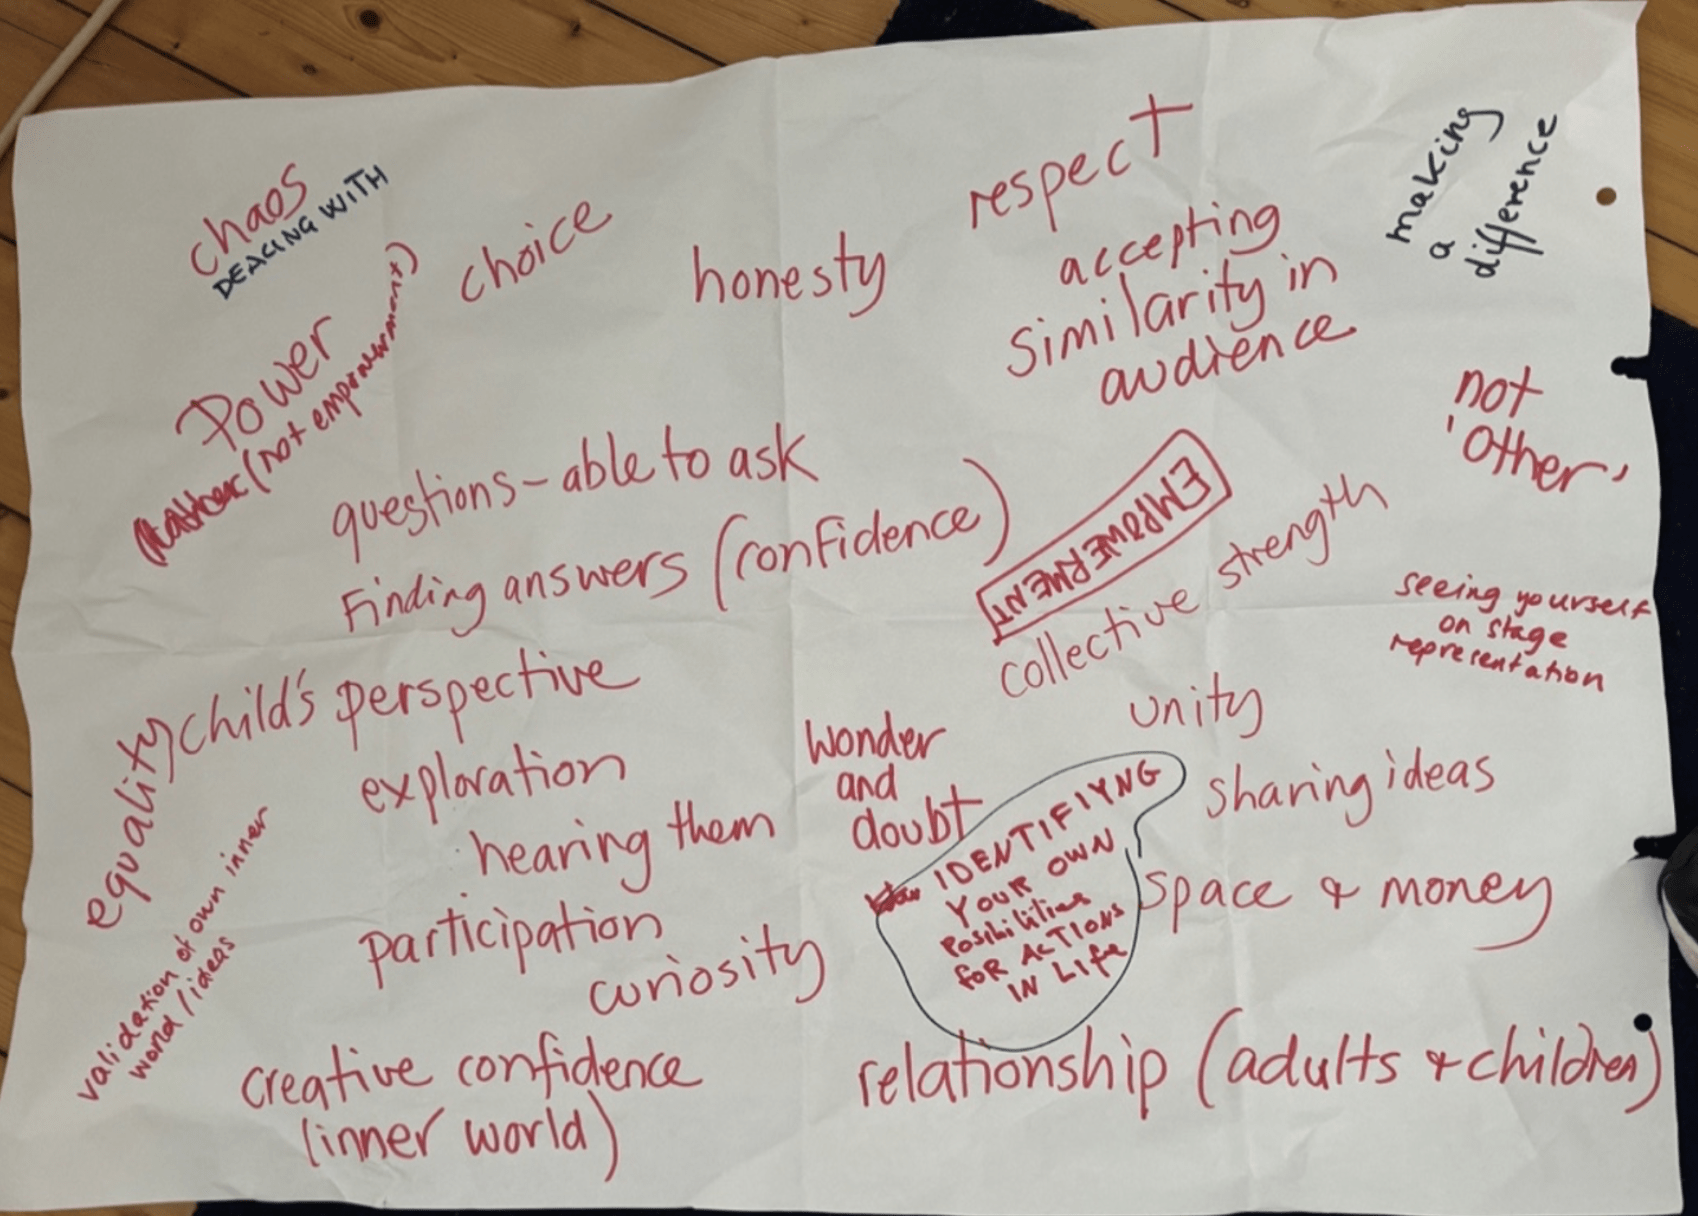 chaos
DEALING WITH
choice
honesty
respect
accepting
similarity in
audience
making
a
difference
Power
(rather (not empowerment)
not
'other'
questions - able to ask
Finding answers (confidence)
EMPOWERMENT
collective strength
seeing yourself
on stage
representation
equality
child's perspective
unity
exploration
wonder
and
doubt
sharing ideas
hearing them
IDENTIFIYNG
YOUR OWN
Posibilities
FOR ACTIONS
IN LIFE
space & money
validation of own inner
world / ideas
participation
curiosity
creative confidence
(inner world)
relationship (adults & children)